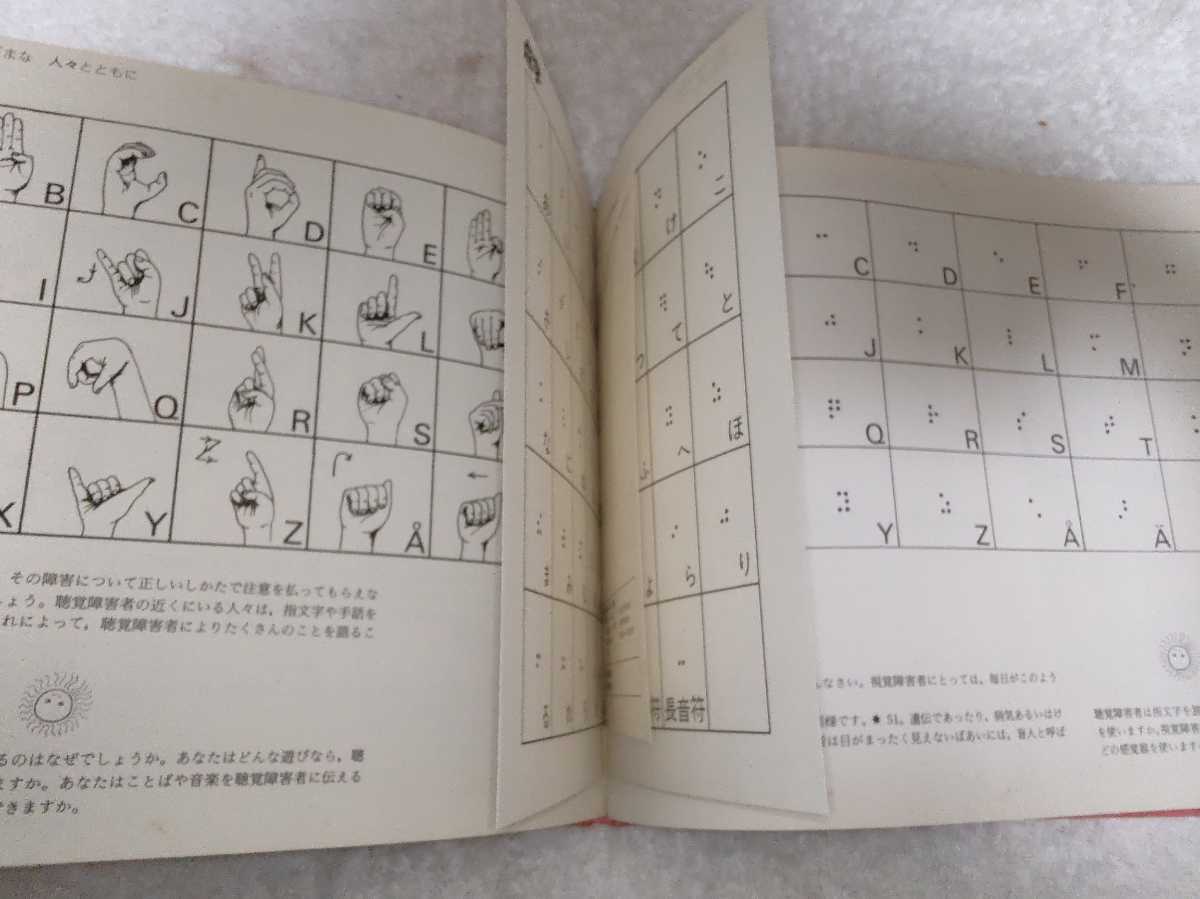 まな 人々とともに
B C D E
I J K L
P Q R S
X Y Z Å
その障害について正しいしかたで注意を払ってもらえな
ょう。聴覚障害者の近くにいる人々は，指文字や手話を
れによって，聴覚障害者によりたくさんのことを語るこ
るのはなぜでしょうか。あなたはどんな遊びなら，聴
ますか。あなたはことばや音楽を聴覚障害者に伝える
きますか。
け こ
つ て と
ふ へ ほ
よ ら り
符 長音符
C D E F
J K L M
Q R S T
Y Z Å Ä
んなさい。視覚障害者にとっては，毎日がこのよう
様です。★ 51。遺伝であったり，病気あるいはけ
は目がまったく見えないばあいには，盲人と呼ば
聴覚障害者は指文字を
を使いますか。視覚障害
どの感覚器を使います